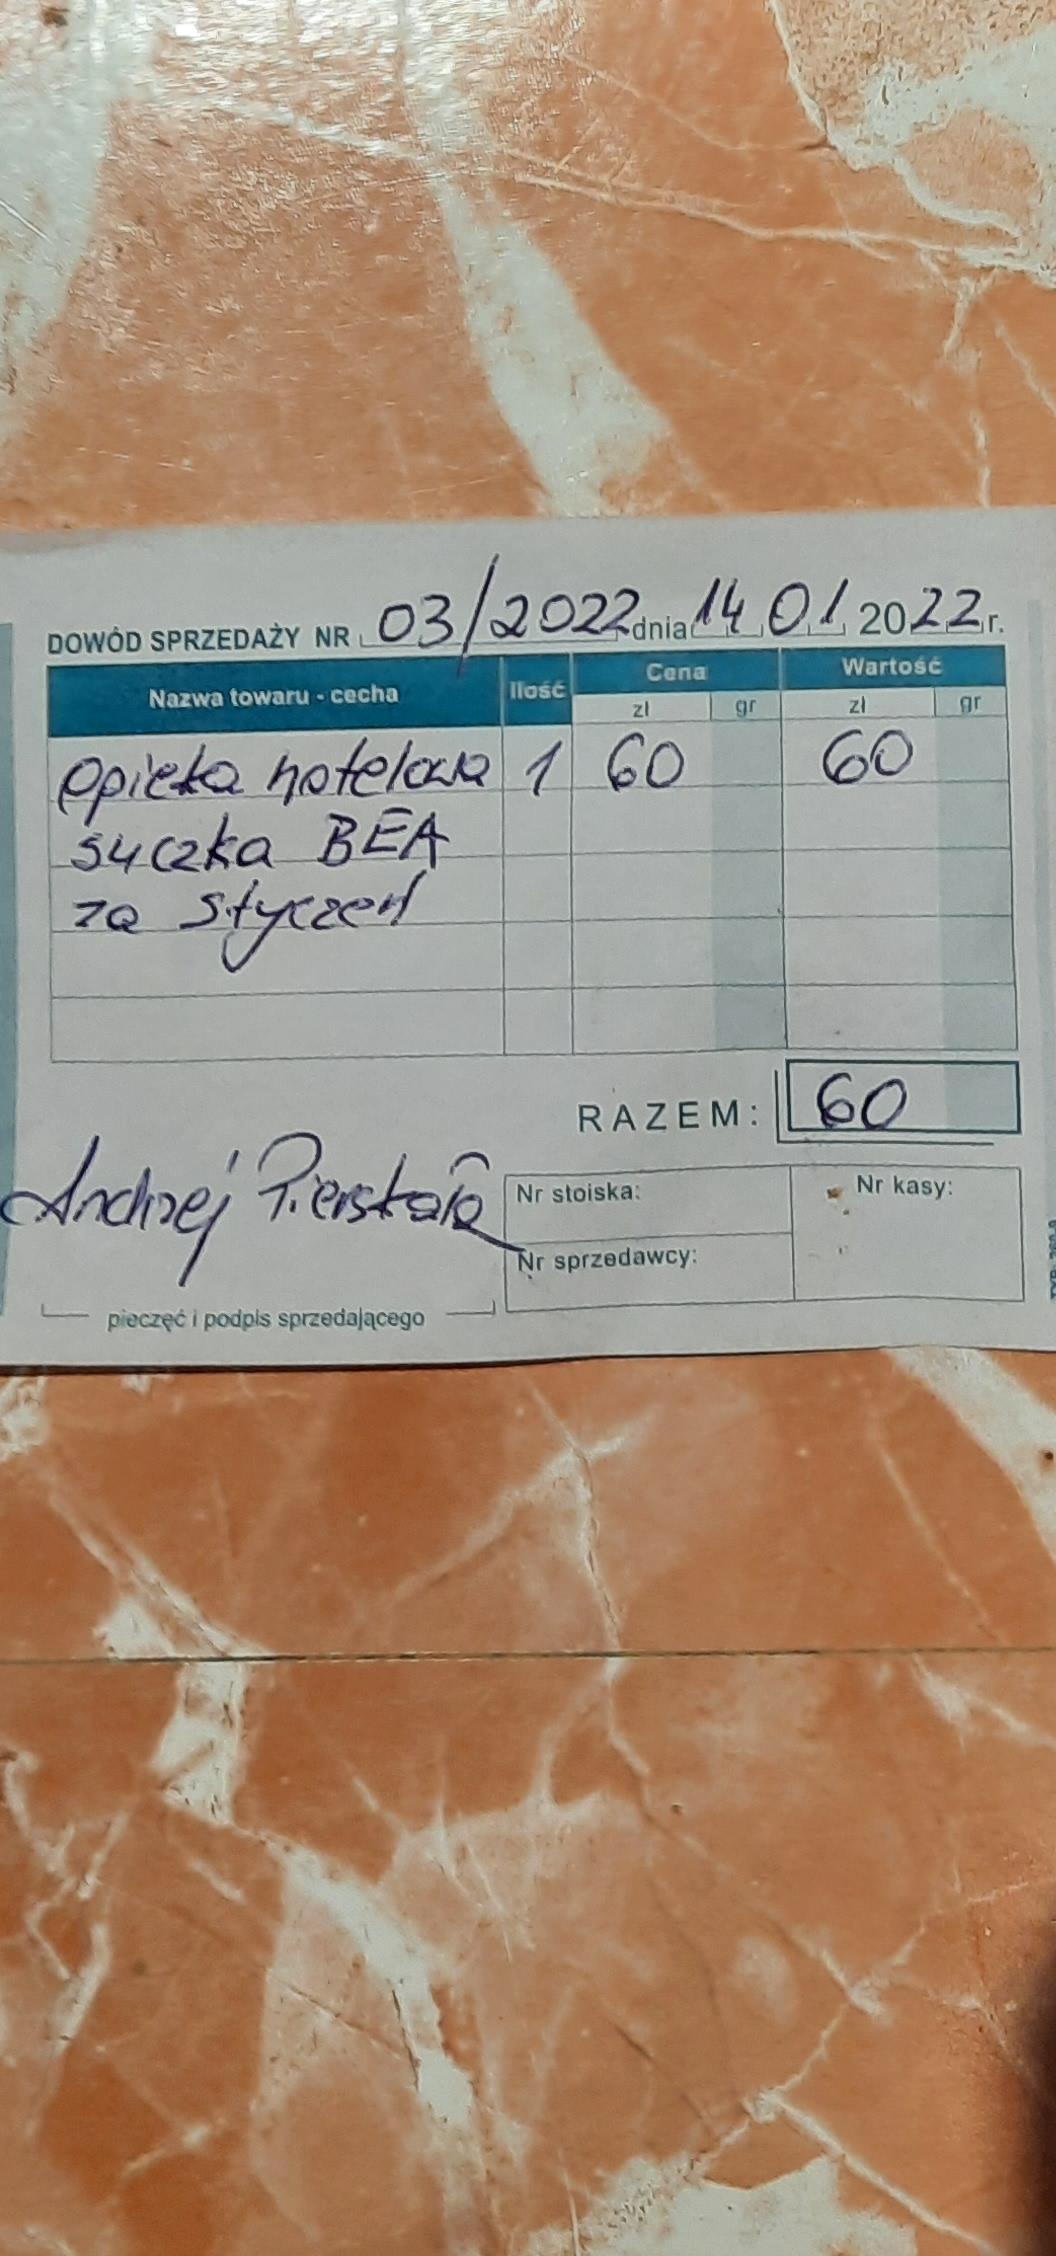 DOWÓD SPRZEDAŻY NR 03/2022 dnia 14 01 2022 r.
Nazwa towaru - cecha Ilość Cena Wartość
zł gr zł gr
opieka hotelowa 1 60 60
suczka BEA
za styczeń
RAZEM: 60
Andrzej
Nr stoiska: Nr kasy:
Nr sprzedawcy:
pieczęć i podpis sprzedającego